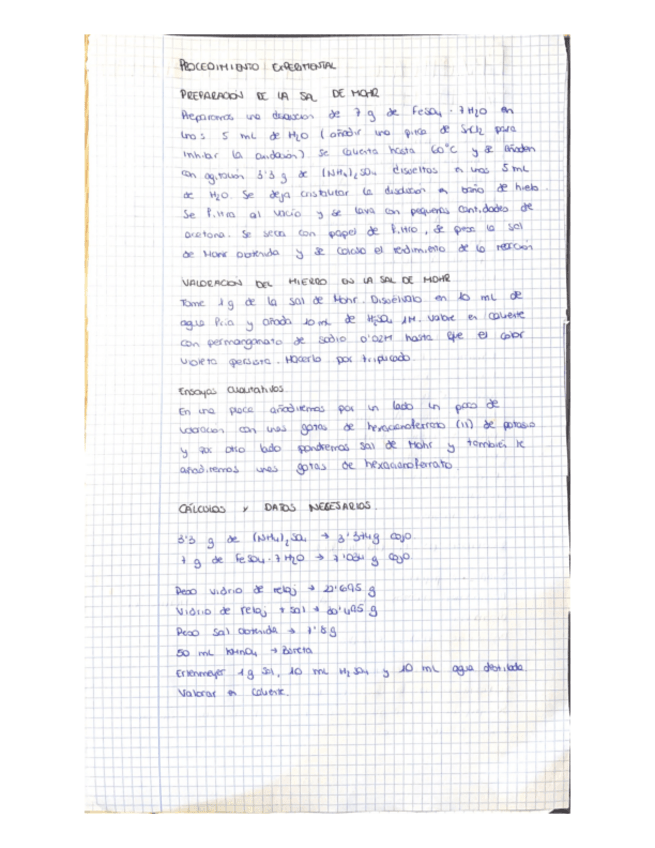 PROCEDIMIENTO EXPERIMENTAL
PREPARACION DE LA SAL DE MOHR
Preparamos una disolucion de 7 g de FeSO4 · 7H2O en
unos 5 mL de H2O (añadir una pizca de SnCl2 para
inhibir la oxidación) se calienta hasta 60°C y se añaden
con agitación 3'3 g de (NH4)2SO4 disueltos en unos 5 mL
de H2O. Se deja cristalizar la disolucion en baño de hielo.
Se filtra al vacío y se lava con pequeñas cantidades de
acetona. Se seca con papel de filtro, se pesa la sal
de Mohr obtenida y se calcula el rendimiento de la reacción
VALORACION DEL HIERRO EN LA SAL DE MOHR
Tome 1 g de la sal de Mohr. Disuélvalo en 10 mL de
agua fría y añada 10 mL de H2SO4 1M. Valore en caliente
con permanganato de sodio 0'02M hasta que el color
violeta persista. Hacerlo por triplicado.
Ensayos cualitativos
En una placa añadiremos por un lado un poco de
valoracion con unas gotas de hexacianoferrato (II) de potasio
y por otro lado pondremos sal de Mohr y también le
añadiremos unas gotas de hexacianoferrato
CÁLCULOS Y DATOS NECESARIOS.
3'3 g de (NH4)2SO4 → 3'374g cojo
7 g de FeSO4 · 7H2O → 7'034 g cojo
Peso vidrio de reloj → 22'695 g
Vidrio de reloj + sal → 30'495 g
Peso sal obtenida → 7'8g
50 mL KMnO4 → Bureta
Erlenmeyer 1g sal, 10 mL H2SO4 y 10 mL agua destilada
Valorar en caliente.